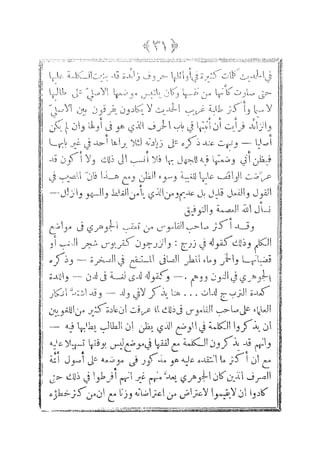 ﴿ ٣١ ﴾
في الحديث كلمات كثيرة في أوائلها حروف زائدة قد بنيت الكلمة عليها
حتى صارت كأنها من نفسها وكان يلتبس موضعها الاصلي على طالبها
لا سيما وأكثر طلبة غريب الحديث لا يكادون يفرقون بين الاصلي
والزائد فرأيت أن أثبتها في باب الحرف الذي هو في أولها وان لم يكن
أصليا — ونبهت عند ذكره على زيادته لئلا يراها أحد في غير بابها
فيظن أني وضعتها فيه للجهل بها فلا أنسب الى ذلك ولا أكون قد
عرّضت الواقف عليها للغيبة وسوء الظن ومع هذا فان المصيب في
القول والفعل قليل بل عديم ومن الذي يأمن الغلط والسهو والزلل —
نسأل الله العصمة والتوفيق
وقد أكثر صاحب القاموس من تعقب الجوهري في مواضع
الكلم وذلك كقوله في زرج : والزرجون كقربوس شجر العنب أو
قضبانها والخمر وماء المطر الصافي المستنقع في الصخرة — وذكره
الجوهري في النون ووهم . — وكقوله لدى لغة في لدن — واللدة
كعدة الترب ج لدات . . . هنا يذكر لا في ولد — وقد اشتد انكار
العلماء على صاحب القاموس في ذلك لما عرفت ان عادة كثير من اللغويين
ان يذكروا الكلمة في الموضع الذي يظن ان الطالب يطلبها فيه —
وانهم قد يذكرون الكلمة مع لفقها في موضع ليس بوقتها تسهيلا عليه
مع ان أكثر ما انتقده عليه هو مذكور في موضعه على أصول أئمة
الصرف الذين كان الجوهري يعد منهم غير انهم أفرطوا في ذلك حتى
كادوا ان لا يقيموا لاعتراض من اعتراضاته وزنا مع ان من كثر خطؤه